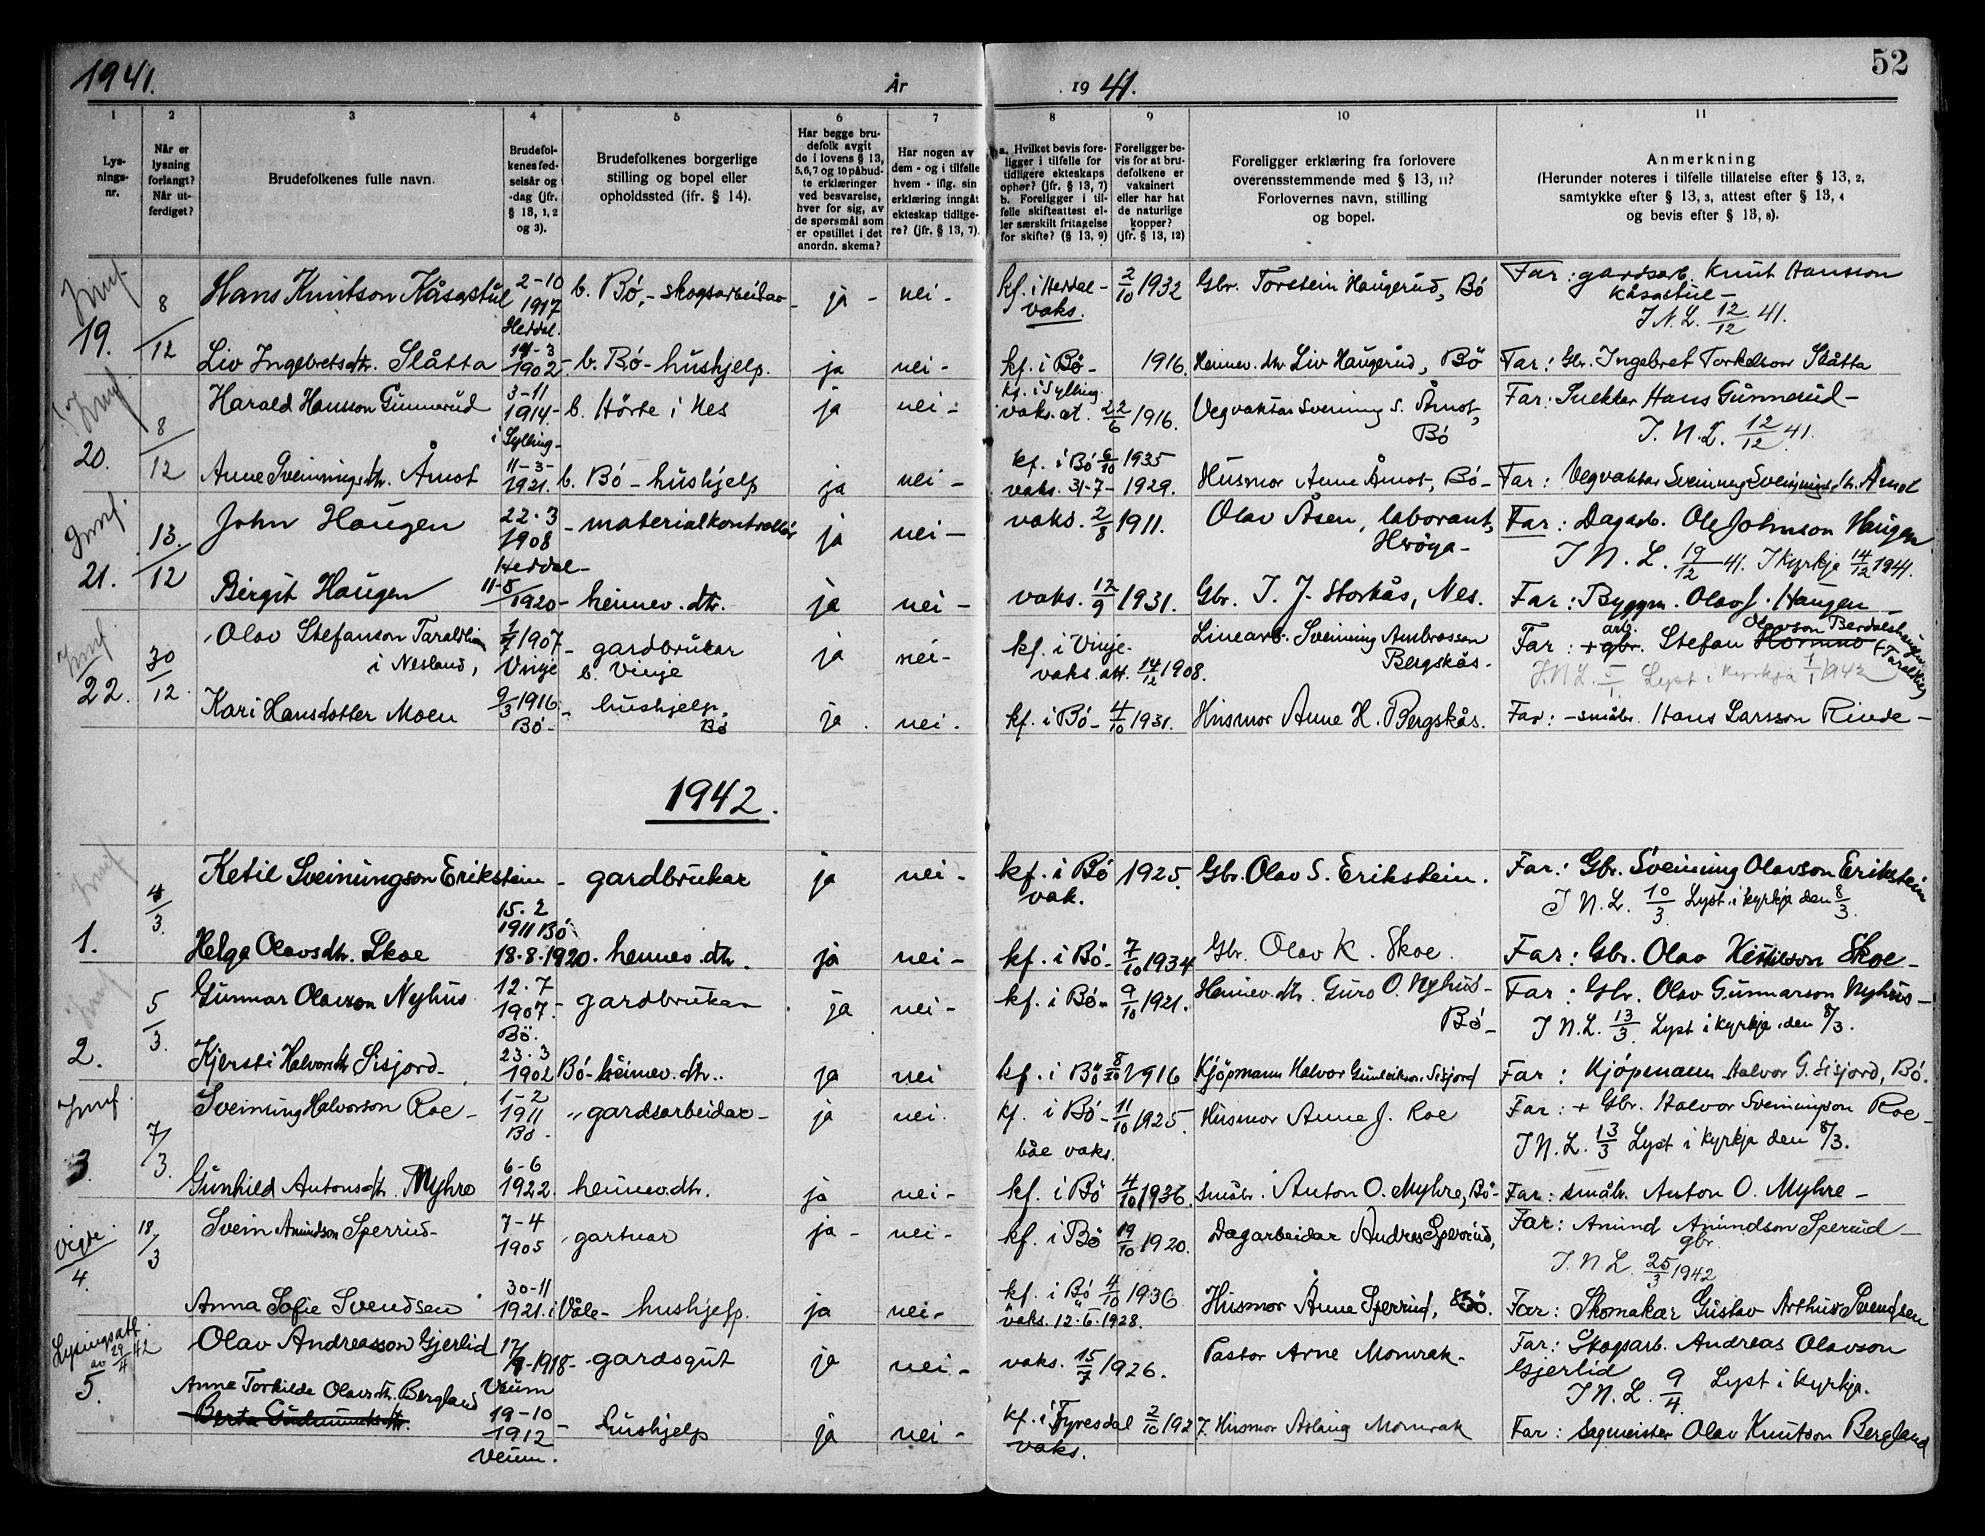 52
1941. År 19 41.
1 2 3 4 5 6 7 8 9 10 11
Lysningsnr.
Når er lysning forlangt? Når utferdiget?
Brudefolkenes fulle navn.
Brudefolkenes fødselsår og -dag (jfr. § 13, 1, 2 og 3).
Brudefolkenes borgerlige stilling og bopel eller opholdssted (jfr. § 14).
Har begge brudefolk avgit de i lovens § 13, 5,6,7 og 10 påbudte erklæringer ved besvarelse, hver for sig, av de spørsmål som er opstillet i det anordn. skema?
Har nogen av dem - og i tilfelle hvem - iflg. sin erklæring inngått ekteskap tidligere? (jfr. § 13, 7).
a. Hvilket bevis foreligger i tilfelle for tidligere ekteskaps ophør? (jfr. § 13, 7) b. Foreligger i tilfelle skifteattest eller særskilt fritagelse for skifte? (§ 13, 9)
Foreligger bevis for at brudefolkene er vaksinert eller har hat de naturlige kopper? (jfr. § 13, 12)
Foreligger erklæring fra forlovere overensstemmende med § 13, 11? Forlovernes navn, stilling og bopel.
Anmerkning (Herunder noteres i tilfelle tillatelse efter § 13, 2, samtykke efter § 13, 3, attest efter § 13, 4 og bevis efter § 13, 8).
19. 8/12 Hans Knutson Kåsastul 2-10 1917 Heddal. b. Bø, - skogsarbeidar - ja - nei - kf. i Heddal - vaks. 2/10 1932 Gbr. Torstein Haugerud, Bø Far: gardsarb. Knut Hansson Kåsastul -
I N. L. 12/12 41.
Liv Ingebretsdtr. Slåtta 14-3 1902 - b. Bø - hushjelp. ja nei - kf. i Bø - 1916. Heimev. dtr. Liv Haugerud, Bø Far: Gbr. Ingebret Torkelson Slåtta
20. 8/12 Harald Hansson Gunnerud 3-11 1914 - i Sylling - b. Hörte i Nes ja nei - kf. i Sylling. vaks. at. 22/6 1916. Vegvaktar Sveinung S. Åmot, Bø Far: Hans Gunnerud -
I. N. L. 12/12 41.
Anne Sveinungsdtr. Åmot 11-3- 1921. b. Bø - hushjelp ja nei - kf. i Bø 6/10 1935 vaks. 31-7- 1929. Husmor Anne Åmot, Bø - Far: Vegvaktar Sveinung Sveinungs. Åmot
21. 13./12 John Haugen 22.3 1908 Heddal - - materialkontrollør ja nei - vaks. 2/8 1911. Olav Åsen, laborant, Herøya - Far: Dagarb. Ole Johnson Haugen
I N. L. 19/12 41. I Kyrkja 14/12 1941.
Birgit Haugen 11-8/1920 - heimev. dtr. ja nei - vaks. 12/9 1931. Gbr. T. J. Storkås, Nes. Far: Byggm. Olav J. Haugen
22. 30/12. Olav Stefanson Taraldlien i Nesland, 1/7 1907 - Vinje gardbrukar b. Vinje ja nei - kf. i Vinje - vaks. att. 14/12 1908. Linearb. Sveinung Ambrosson Bergskås - Far: + arb. gbr. Stefan Olavson Berdalshaugen (Taraldlien)
I. N L. 5/1. Lyst i kyrkja 1/1 1942
Kari Hansdotter Moen 9/3 1916 Bø - - hushjelp. Bø ja. nei. kf. i Bø - 4/10 1931. Husmor Anne H. Bergskås. Far: - småbr. Hans Larsson Rinde -
1942.
1. 4/3. Ketil Sveinungson Erikstein - 15.2 1911 Bø gardbrukar ja nei - kf. i Bø vak. 1925. Gbr. Olav S. Erikstein. Far: Gbr. Sveinung Olavson Erikstein
I N. L. 10/3 Lyst i kyrkja den 8/3.
Helga Olavsdtr. Skoe 18.8.1920. heimev. dtr. ja nei - kf. i Bø - 7/10 1934 Gbr. Olav K. Skoe. Far: Gbr. Olav Kittilson Skoe -
2. 5/3. Gunnar Olavson Nyhus 12.7 1907 - Bø. gardbrukar ja nei - kf. i Bø - 9/10 1921. Heimev. dtr. Guro O. Nyhus - Bø - Far: Gbr. Olav Gunnarson Nyhus -
I N. L. 13/3. Lyst i kyrkja den 8/3.
Kjersti Halvorsdtr Sisjord - 23.3 1902 Bø - heimev. dtr. ja nei kf. i Bø 8/10 1916 Kjöpmann Halvor Gunleikson Sisjord Far: Kjöpmann Halvor G. Sisjord, Bø.
3. 7/3. Sveinung Halvorson Roe - 1-2 1911 Bø - gardsarbeidar - ja nei. kf. i Bø - 11/10 1925. båe vaks. Husmor Anne J. Roe Far: + Gbr. Halvor Sveinungson Roe -
I N. L. 13/3 Lyst i kyrkja den 8/3.
Gunhild Antonsdtr. Myhre 6-6 1922. heimev. dtr. ja nei - kf. i Bø 4/10 1936. småbr. Anton O. Myhre, Bø - Far: småbr. Anton O. Myhre -
vigde 4. 18/3 Svein Amundson Sperrud - 7-4 1905 gartnar ja - nei - kf. i Bø 19/10 1920. Dagarbeidar Andres Sperrud, Far: Amund Amundson Sperud - gbr.
I. N L. 25/3 1942
Anna Sofie Svendsen 30-11 1921. i Våle - hushjelp. ja nei - kf. i Bø 4/10 1936 vaks. 12.6.1928. Husmor Anne Sperrud, Bø. Far: Skomakar Gustav Arthur Svendsen
Lysingsatt. av 29/4 42 5. Olav Andreasson Gjerlid 17/9 - 1918 - Veum gardsgut ja nei - vaks. 15/7 1926. Pastor Arne Momrak - Far: Skogsarb. Andreas Olavson Gjerlid
I N. L. 9/4. Lyst i kyrkja.
Anne Torhilde Olavsdtr. Bergland 19-10 1912 Veum. - hushjelp ja nei - kf. i Fyresdal 2/10 1927. vaks. Husmor Aslaug Momrak Far: Sagmeister Olav Knutson Bergland